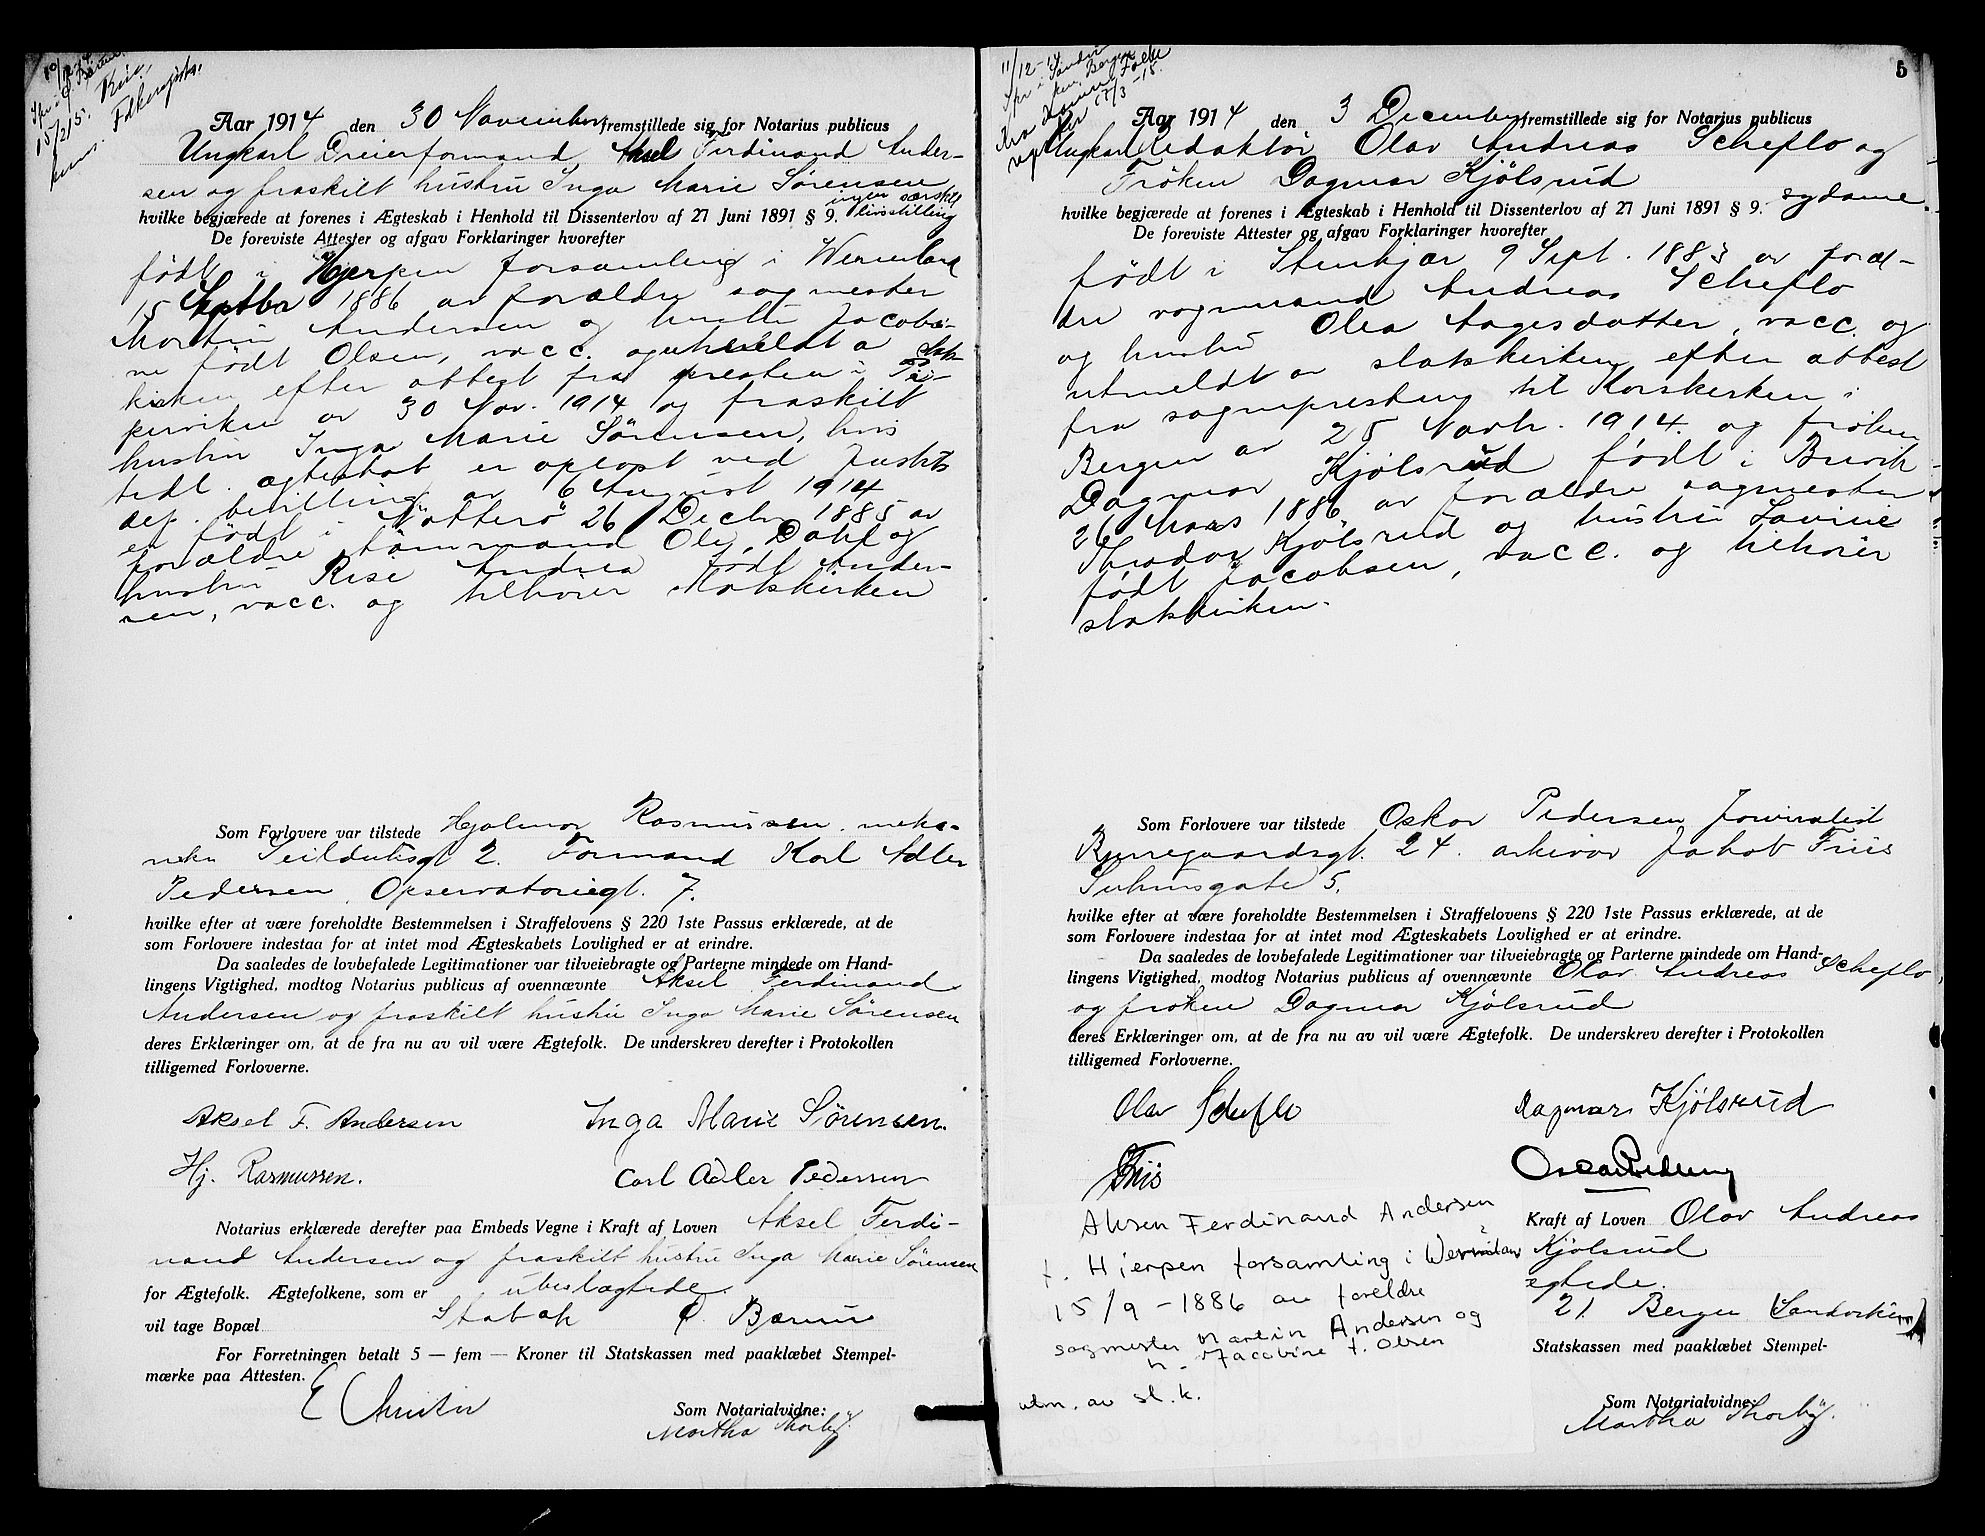 Aar 1914 den 30 November fremstillede sig for Notarius publicus
Ungkarl Dreierformand Aksel Ferdinand Ander-
sen og fraskilt hustru Inga Marie Sørensen
ingen særskilt
hvilke begjærede at forenes i Ægteskab i Henhold til Dissenterlov af 27 Juni 1891 § 9. livsstilling
De foreviste Attester og afgav Forklaringer hvorefter
født i Hjerpen forsamling i Wermland
15 Septbr 1886 av forældre sagmester
Martin Andersen og hustru Jacobi-
ne født Olsen, vacc. og utmeldt a stats
kirken efter attest fra presten i Pi-
perviken av 30 Nov. 1914 og fraskilt
hustru Inga Marie Sørensen, hvis
tidl. ægteskab er opløst ved Justits
dep. bevilling av 6 August 1914
er født i Nötterö 26 Decbr 1885 av
forældre tømmermand Ole Dahl og
hustru Rise Andrea født Ander-
sen, vacc. og tilhører statskirken
Som Forlovere var tilstede Hjalmar Rasmussen meka-
niker Seilduksgt 2. Formand Karl Adler
Pedersen Opservatoriegt. 7.
hvilke efter at være foreholdte Bestemmelsen i Straffelovens § 220 1ste Passus erklærede, at de
som Forlovere indestaa for at intet mod Ægteskabets Lovlighed er at erindre.
Da saaledes de lovbefalede Legitimationer var tilveiebragte og Parterne mindede om Hand-
lingens Vigtighed, modtog Notarius publicus af ovennævnte Aksel Ferdinand
Andersen og fraskilt hustru Inga Marie Sørensen
deres Erklæringer om, at de fra nu av vil være Ægtefolk. De underskrev derefter i Protokollen
tilligemed Forloverne.
Aksel F. Andersen Inga Marie Sørensen.
Hj. Rasmussen. Carl Adler Pedersen
Notarius erklærede derefter paa Embeds Vegne i Kraft af Loven Aksel Ferdi-
nand Andersen og fraskilt hustru Inga Marie Sørensen
for Ægtefolk. Ægtefolkene, som er ubeslægtede.
vil tage Bopæl Stabæk Bærum
For Forretningen betalt 5 — fem — Kroner til Statskassen med paaklæbet Stempel-
mærke paa Attesten.
Som Notarialvidne:
Martha Thorby.
5
11/12-14
Aar 1914 den 3 December fremstillede sig for Notarius publicus
Ungkarl Redaktör Olav Andreas Scheflo og
Frøken Dagmar Kjölsrud
sydame.
hvilke begjærede at forenes i Ægteskab i Henhold til Dissenterlov af 27 Juni 1891 § 9.
De foreviste Attester og afgav Forklaringer hvorefter
født i Stenkjær 9 Sept. 1883 av foræl-
dre vognmand Andreas Scheflo
og hustru Olea Aagesdatter, vacc. og
utmeldt av statskirken efter attest
fra sognepresten til Korskirken i
Bergen av 25 Novbr. 1914. og frøken
Dagmar Kjölsrud født i
26 Mars 1886 av forældre sagmester
Throdor Kjölsrud og hustru Lovise
født Jacobsen, vacc. og tilhører
statskirken.
Som Forlovere var tilstede Oskar Pedersen Journalist
Bjerregaardsgt. 24. arkivar Jakob Friis
Suhmsgate 5.
hvilke efter at være foreholdte Bestemmelsen i Straffelovens § 220 1ste Passus erklærede, at de
som Forlovere indestaa for at intet mod Ægteskabets Lovlighed er at erindre.
Da saaledes de lovbefalede Legitimationer var tilveiebragte og Parterne mindede om Hand-
lingens Vigtighed, modtog Notarius publicus af ovennævnte Olav Andreas Scheflo
og frøken Dagmar Kjölsrud
deres Erklæringer om, at de fra nu av vil være Ægtefolk. De underskrev derefter i Protokollen
tilligemed Forloverne.
Olav Scheflo Dagmar Kjölsrud
Friis Oscar Pedersen
Aksen Ferdinand Andersen
f. Hjerpen forsamling i Wermland
15/9-1886 av foreldre
sagmester Martin Andersen og
h. Jacobine f. Olsen
utm. av st.k.
Kraft af Loven Olav Andreas
Kjölsrud
egtede.
21 Bergen Sandviken
Statskassen med paaklæbet Stempel-
Som Notarialvidne:
Martha Thorby.